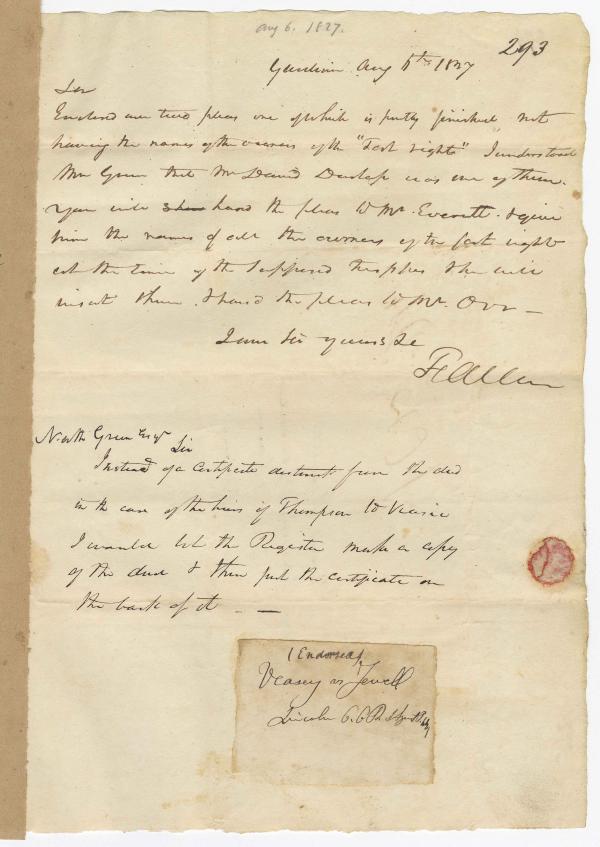 Aug 6. 1827.
293
Gardiner Aug 6th 1827
Sir
Enclosed are two pleas one of which is partly finished not
having the names of the owners of the "Fast right" I understood
Mr Green that Mr David Dunlap was one of them.
You will hand the pleas to Mr. Everett & give
him the names of all the owners of the fast right
at the time of the supposed trespass & he will
insert them & hand the pleas to Mr. Orr —
I am Sir yours &c
F Allen
Green Esqr
Sir
Instead of a certificate abstract from the deed
in the case of the heirs of Thompson to Veasie
I would let the Register make a copy
of the deed & then put the certificate on
the back of it —
(Endorsed)
Veasey vs Jewell
Lincoln C.C.P.